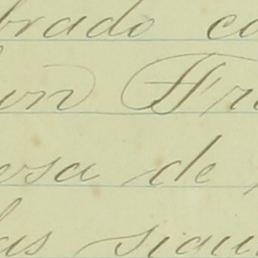 brado co
un Fra
esa de
las sigui